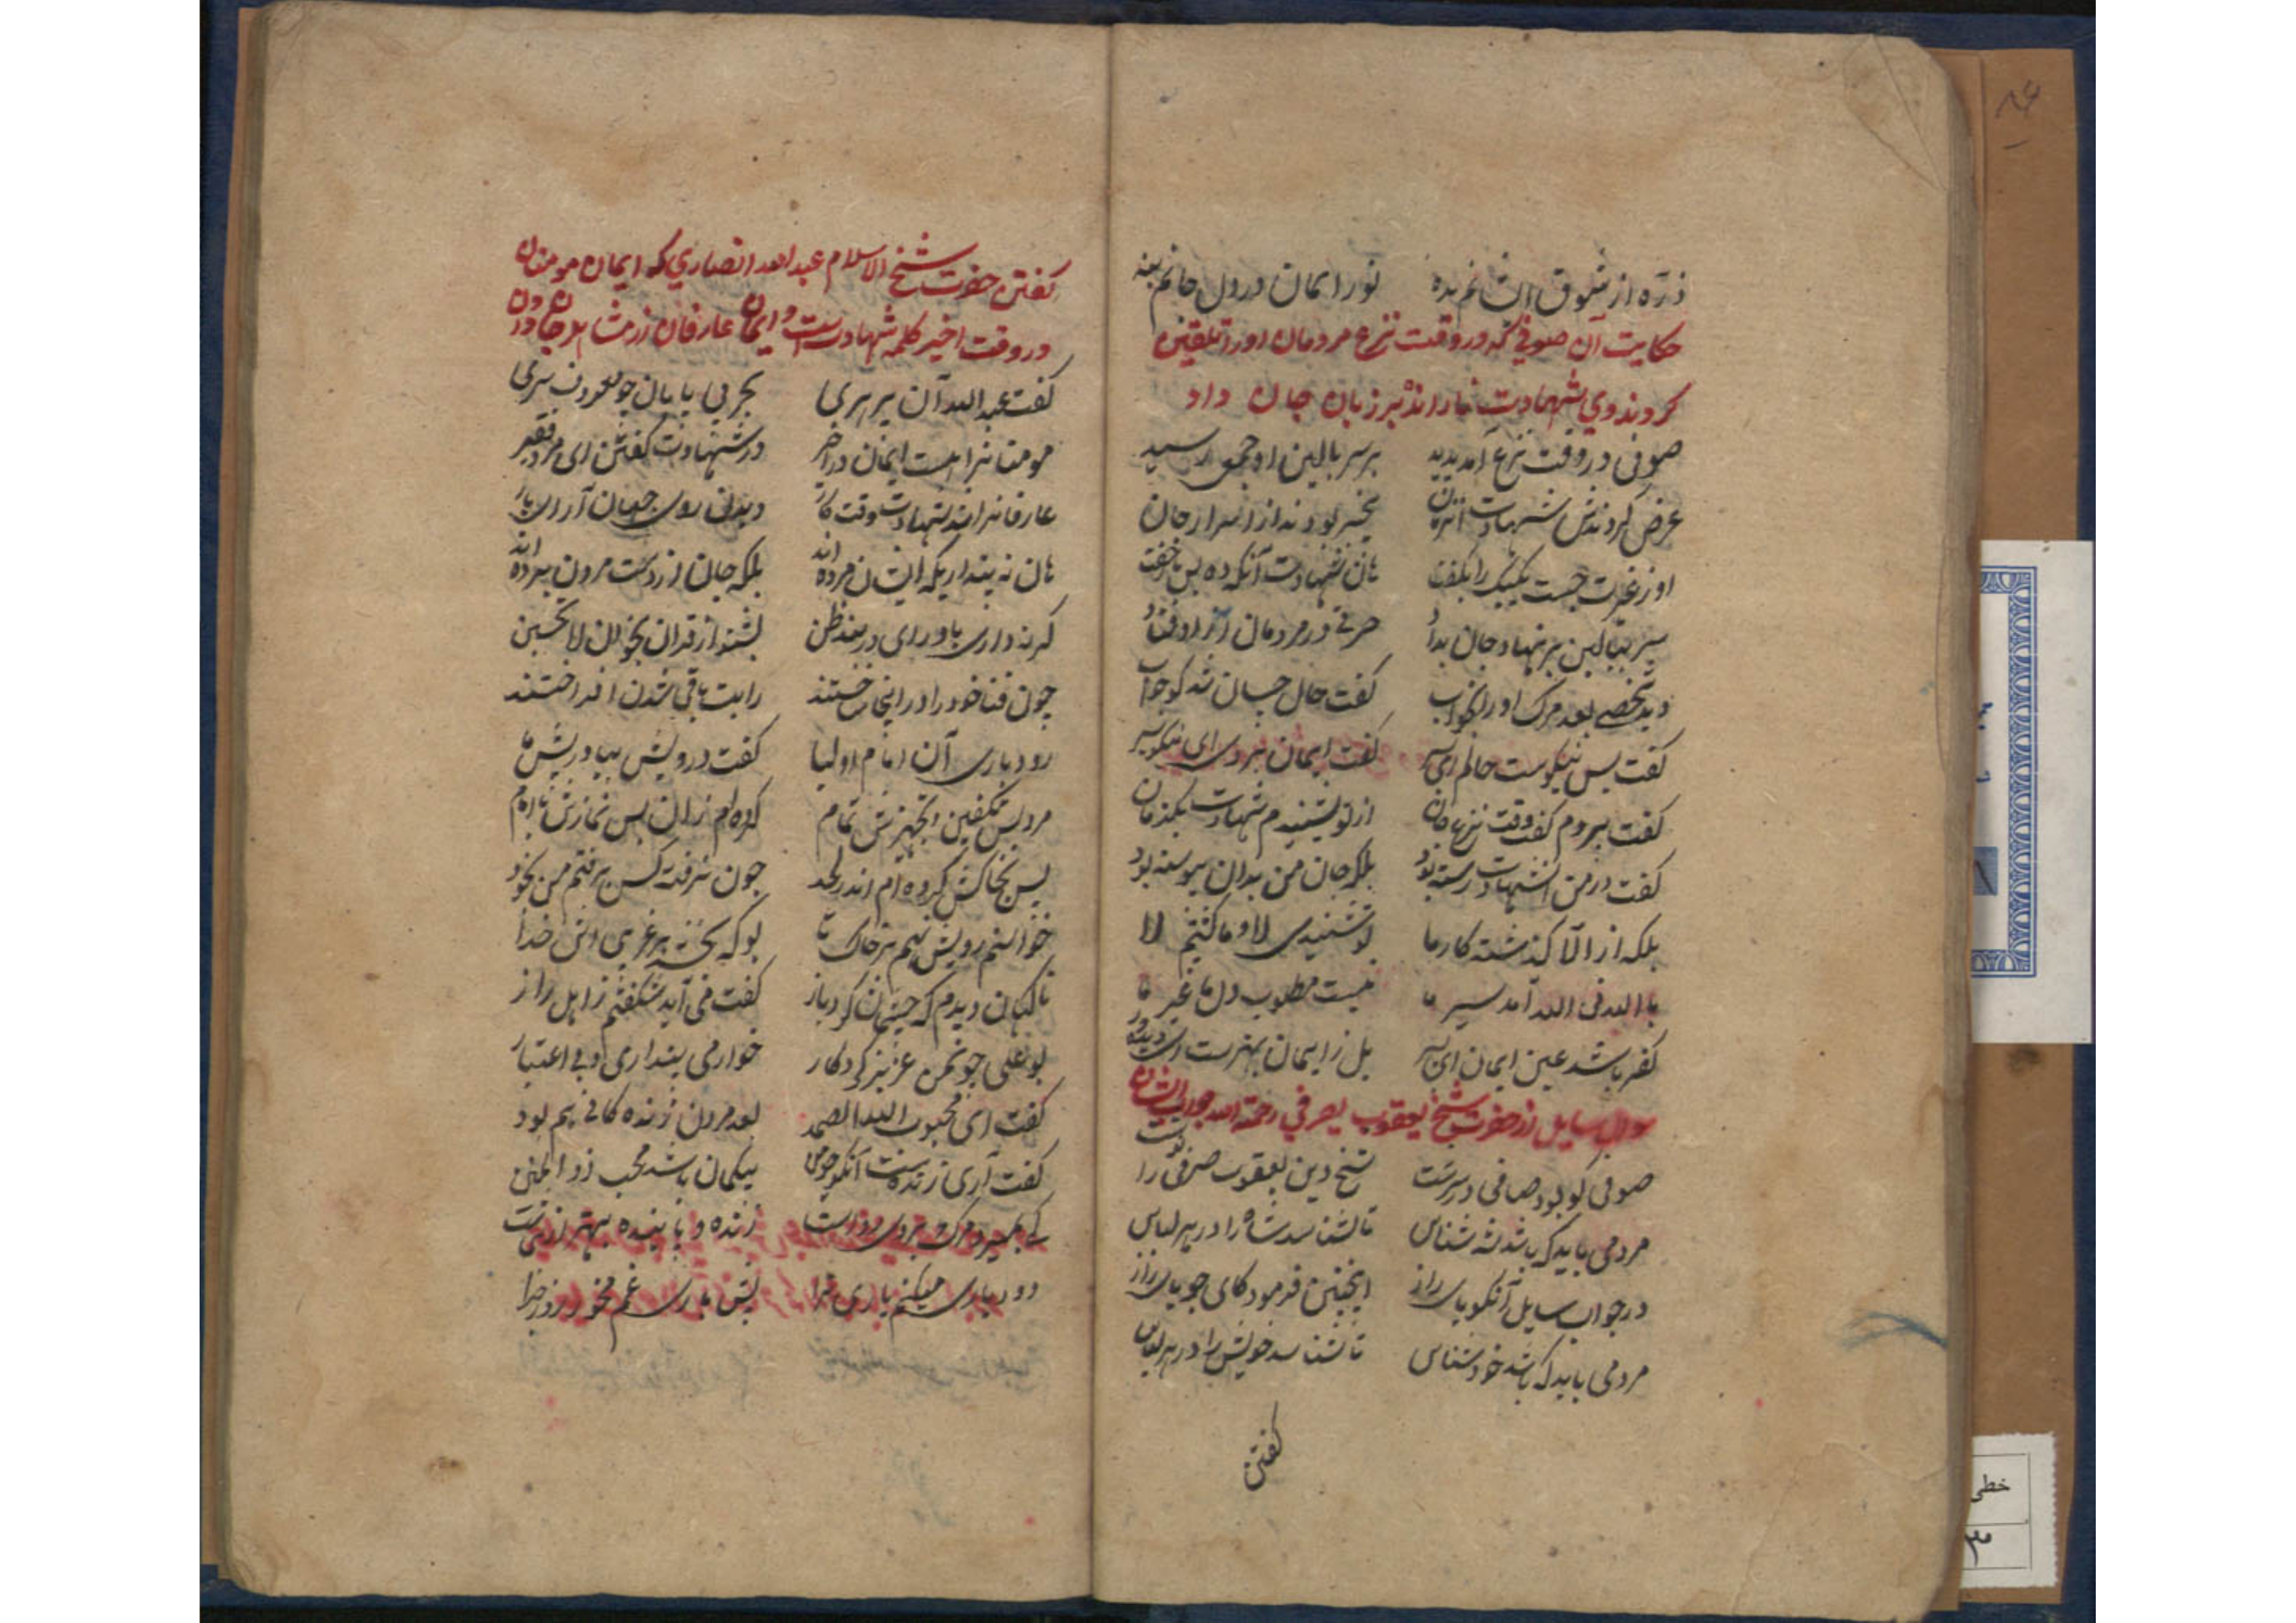 ذره از شوق ایشانم بده نور ایمان در دل جانم بنه
حکایت آن صوفی که در وقت نزع مردمان او را تلقین
کردند وی شهادت نا رانده بر زبان جان داد
صوفی در وقت نزع آمد پدید بر سر بالین او جمعی رسید
عرض کردندش شهادت آن زمان بیخبر بودند از اسرار جان
او ز غیرت جست یک یک را بگفت هان شهادت آنکه ده پس بخفت
سر ببالین بر نهاد و جان بداد حرفی در مردمان زو اوفتاد
دید شخصی بعد مرگ او را بخواب گفت حال چسان شد گو جواب
گفت بس نیکوست حالم ای پسر گفت ایمان بردی ای نیکو سیر
گفت بردم گفت وقت نزع جان از تو نشنیدم شهادت یکزمان
گفت در من آن شهادت رسته بود بلکه جان من بدان پیوسته بود
بلکه از الا گذشته کار ما تو شنیدی لا و ما گشتیم لا
با الله فی الله آمد سیر ما نیست مطلوب دل ما غیر ما
کفر باشد عین ایمان ای پسر بل ز ایمان بهترست
سوال سایل از حضرت شیخ یعقوب صرفی رحمة الله
صوفی کو بود صافی در سرشت شیخ دین یعقوب صرفی را
مرد می باید که باشد شه شناس تا شناسد شاه را در هر لباس
در جواب سایل آنکو یای راز اینچنین فرمود کای جویای راز
مرد می باید که باشد خود شناس تا شناسد خویش را در هر لباس
گفتن
گفتن حضرت شیخ الاسلام عبد الله انصاری که ایمان مومنان
در وقت اخیر کلمه شهادت است و ایمان عارفان از مشاهده
گفت عبد الله آن پیر هری بحر بی پایان چو معروف سری
مومنانرا هست ایمان در اخیر در شهادت گفتن ای مرد فقیر
عارفانرا شهادت وقت کار دیدن روی جهان آرای یار
هان نه پنداری که ایشان مرده اند بلکه جان از دست مردن برده اند
گر نداری باور ای در بند ظن بشنو از قران بخوان لا تحسبن
چون فنا خود را در اینجا ساختند رایت باقی شدن افراختند
رودباری آن امام اولیا گفت درویش بیا در پیش ما
مرد پس تکفین و تجهیزش تمام کرده ام زان پس نمازش با امام
پس بخاکش کرده ام اندر لحد چون گرفته کس برفتم من بخود
خواستم رویش نهم بر خاک تا بو که بخشد بر غریبی اش خدا
ناگهان دیدم که چشمان کرد باز گفت می آید شگفتم ز اهل راز
بو علی چون من عزیز کردگار خوار می پنداری و بی اعتبار
گفت ای محبوب الله الصمد بعد مردن زنده گانی هم بود
گفت آری زنده است آنکو چو من بیگمان باشد محب ذو المنن
کی بمیرد مرگ بر وی زنده و پاینده بهتر از نی ست
رودباری میکنم یاری ترا پس باری غم مخور روز جزا